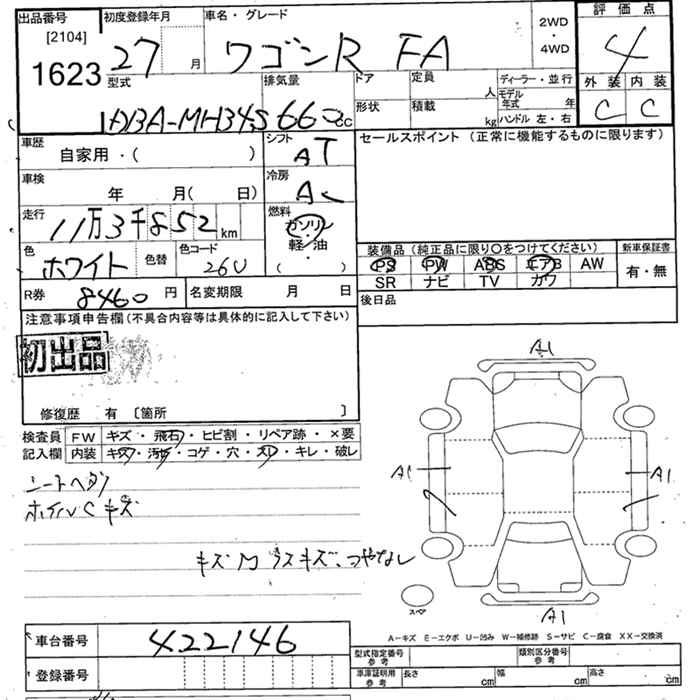 出品番号
[2104]
1623
初度登録年月
27 月
車名・グレード
ワゴンR FA
2WD
・
4WD
評価点
4
外装 内装
C C
型式
DBA-MH34S
排気量
660cc
ドア
形状
定員 人
積載 kg
ディーラー・並行
モデル年式 年
ハンドル 左・右
車歴
自家用・( )
シフト
AT
セールスポイント (正常に機能するものに限ります)
車検
年 月( 日)
冷房
AC
走行
11万3千852km
燃料
ガソリン
・
軽油
( ・ )
色
ホワイト
色替
色コード
26U
装備品(純正品に限り○をつけてください)
新車保証書
PS PW ABS エアB AW
SR ナビ TV カワ
有・無
R券
8460円
名変期限 月 日
後日品
注意事項申告欄(不具合内容等は具体的に記入して下さい)
初出品
修復歴 有 〔箇所 〕
検査員記入欄
FW キズ・飛石・ヒビ割・リペア跡・×要
内装 キズ・汚れ・コゲ・穴・スレ・キレ・破レ
シートヘタリ
ホイルC キズ
A1
A1
A1
A1
スペア
A-キズ E-エクボ U-凹み W-補修跡 S-サビ C-腐食 XX-交換済
車台番号
422146
登録番号
型式指定番号
参考
類別区分番号
参考
車庫証明用
参考
長さ cm
幅 cm
高さ cm